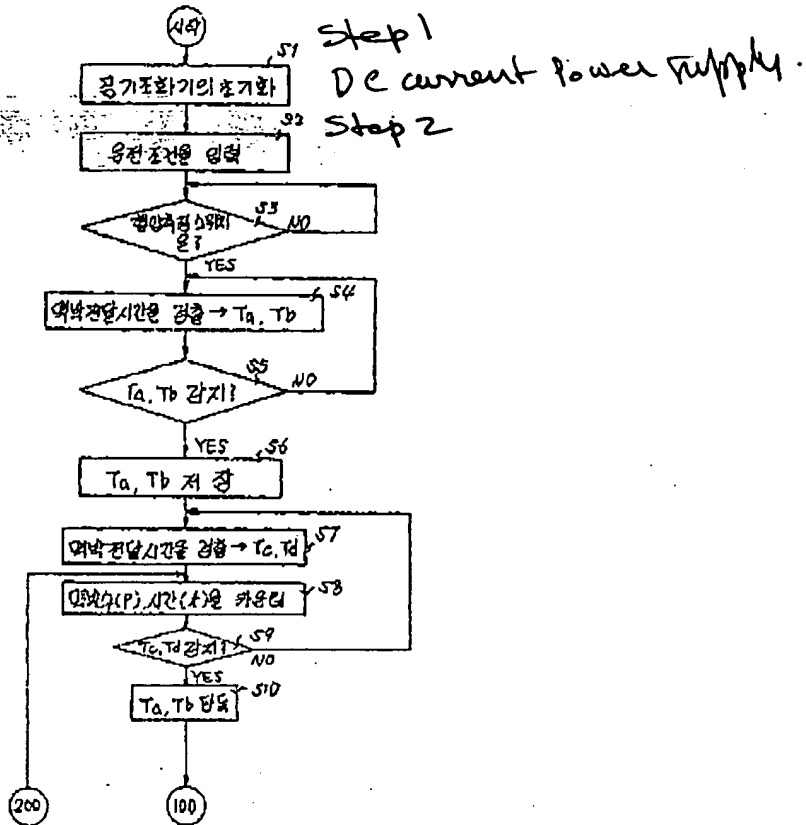 시작
S1
Step 1
공기조화기의 초기화
DC current Power Supply.
S2
Step 2
운전조건을 입력
혈압측정스위치
S3
NO
온?
YES
S4
맥박전달시간을 검출→Ta, Tb
S5
Ta, Tb 감지?
NO
YES
S6
Ta, Tb 저장
S7
맥박전달시간을 검출→Tc, Td
S8
맥박수(P), 시간(t)을 카운터
S9
Tc, Td 감지?
NO
YES
S10
Ta, Tb
200
100